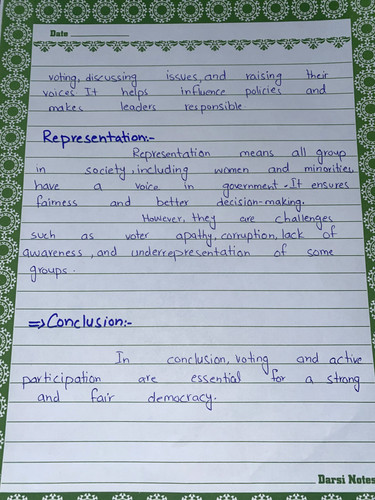 Date
voting, discussing issues, and raising their
voices. It helps influence policies and
makes leaders responsible
Representation:-
Representation means all group
in society, including women and minorities
have a voice in government. It ensures
fairness and better decision-making.
However, they are challenges
such as voter apathy, corruption, lack of
awareness, and underrepresentation of some
groups.
⇒ Conclusion:-
In conclusion, voting and active
participation are essential for a strong
and fair democracy.
Darsi Notes